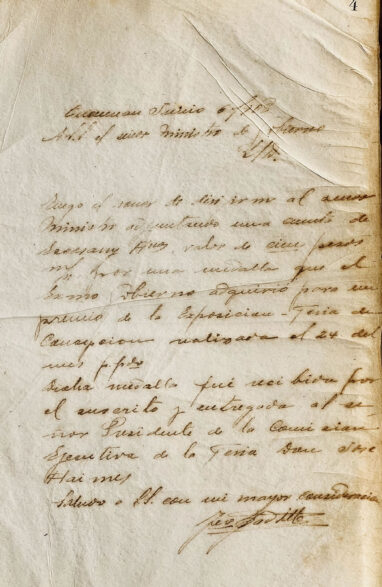 4
Tucuman Junio 6/903
A S.S. el señor Ministro de Gobierno
S/D.
Tengo el honor de dirigirme al señor
Ministro adjuntando una cuenta de
Hnos valor de cien pesos
m/n por una medalla que el
Exmo Gobierno adquirió para un
premio de la Exposicion-Feria de
Concepcion realizada el 24 del
mes p.pdo
Dicha medalla fué recibida por
el suscrito y entregada al se-
ñor Presidente de la Comision
Ejecutiva de la Feria Don José
Haimes
Saludo a S.S. con mi mayor consideracion